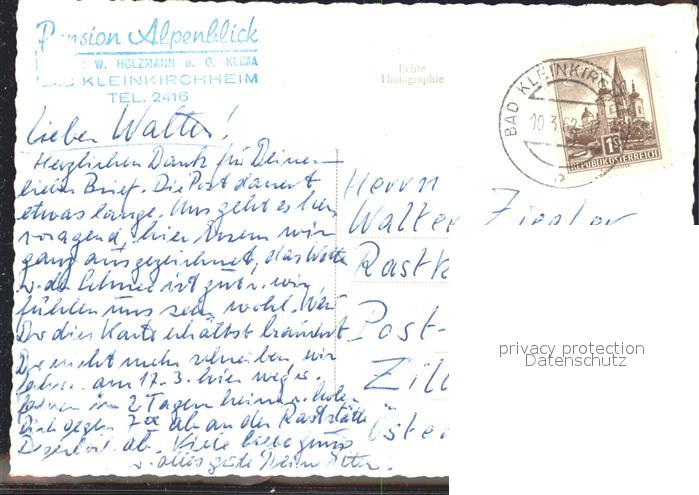 Pension Alpenblick
W. HOLZMANN u. O. KLIMA
KLEINKIRCHHEIM
TEL. 2416
Echte
Photographie
BAD KLEINKIRCH
10.3.62
1S
REPUBLIK ÖSTERREICH
Lieber Walter!
Herzlichen Dank für Deinen
lieben Brief. Die Post dauert
etwas lange. Uns geht es hervor
ragend, hier wir
ganz ausgezeichnet, das Wetter
u. der Schnee ist gut u. wir
fühlen uns sehr wohl. Wenn
Du die Karte erhältst brauchst
Du nicht mehr schreiben, wir
am 12.3. hier weg u.
in 2 Tagen heim u. holen
Dich gegen ab an der Raststätte
ab. Viele liebe
u. alles gute Deine
Herrn
Walter Ziegler
Rastk
Post-
Zill
Öster
privacy protection
Datenschutz